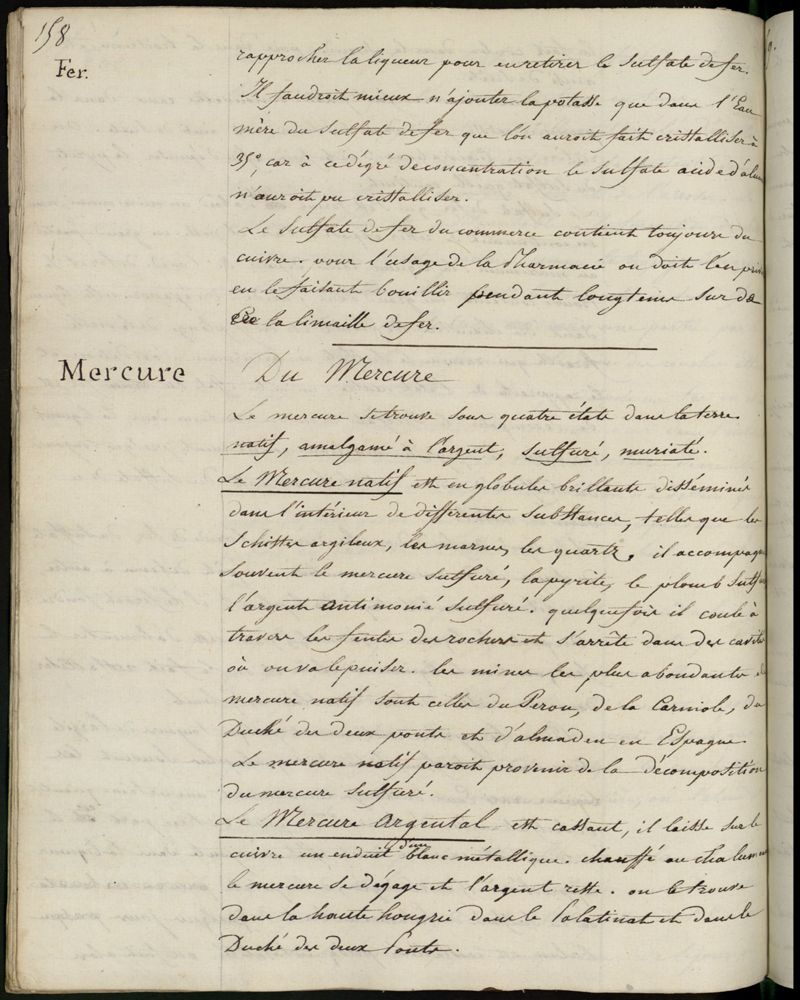 158
Fer.
rapprocher la liqueur pour en retirer le Sulfate de fer.
Il faudroit mieux n'ajouter la potasse que dans l'Eau
mère du Sulfate de fer que l'on auroit fait cristalliser à
35°, car à ce dégré de concentration le Sulfate acide d'alum
n'auroit pu cristalliser.
Le Sulfate de fer du commerce contient toujours du
cuivre. pour l'usage de la Pharmacie on doit l'en priv
en le faisant bouillir pendant longtems sur de
la limaille de fer.
Mercure
Du Mercure
Le mercure se trouve sous quatre états dans la terre
natif, amalgamé à l'argent, sulfuré, muriaté.
Le Mercure natif est en globules brillants disséminés
dans l'intérieur de différentes substances, telles que les
Schistes argileux, les marnes, les quartz, il accompagne
souvent le mercure sulfuré, la pyrite, le plomb sulfu
l'argent antimonié sulfuré. quelquefois il coule à
travers les fentes des rochers et s'arrête dans des cavités
où on va le puiser. les mines les plus abondantes de
mercure natif sont celles du Perou, de la Carniole, du
Duché des deux ponts et d'almaden en Espagne.
Le mercure natif paroit provenir de la décomposition
du mercure sulfuré.
Le Mercure argental est cassant, il laisse sur le
cuivre un enduit d'un blanc métallique. chauffé au chalumeau
le mercure se dégage et l'argent reste. on le trouve
dans la haute hongrie dans le Palatinat et dans le
Duché des deux Ponts.